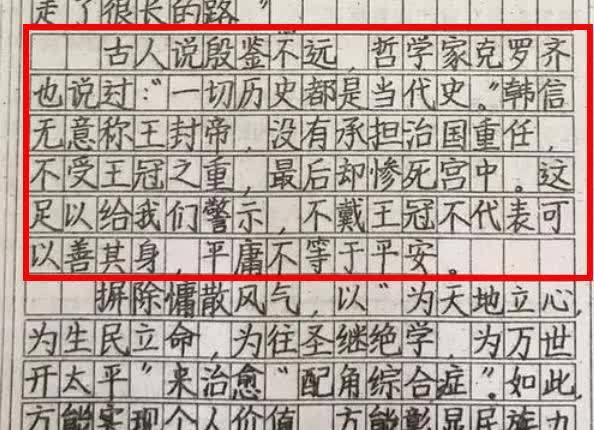 走了很长的路”
古人说殷鉴不远，哲学家克罗齐
也说过：“一切历史都是当代史。”韩信
无意称王封帝，没有承担治国重任，
不受王冠之重，最后却惨死宫中。这
足以给我们警示，不戴王冠不代表可
以善其身，平庸不等于平安。
摒除慵散风气，以“为天地立心，
为生民立命，为往圣继绝学，为万世
开太平”来治愈“配角综合症”。如此，
方能实现个人价值，方能彰显民族力